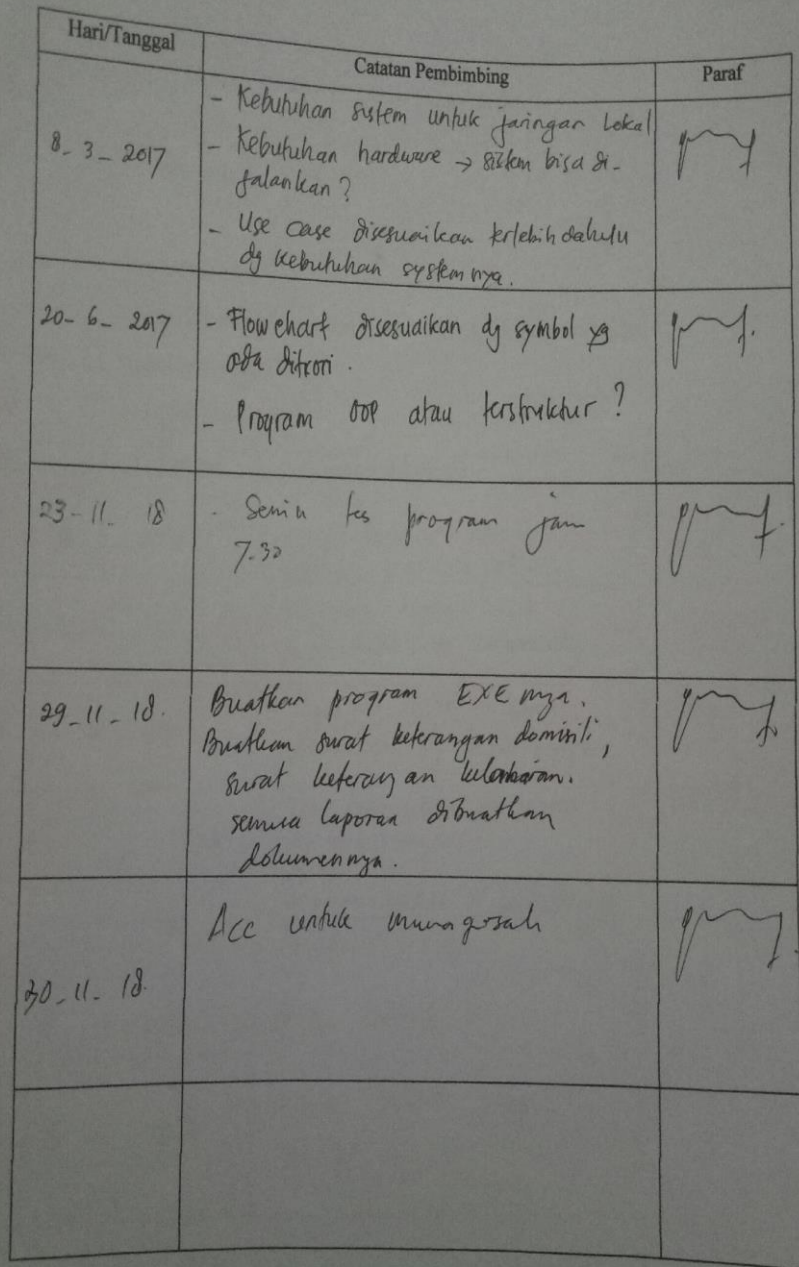 Hari/Tanggal
Catatan Pembimbing
Paraf
8-3-2017
- Kebutuhan sistem untuk jaringan lokal
- Kebutuhan hardware → sistem bisa di-
jalankan?
- Use case disesuaikan terlebih dahulu
dg kebutuhan systemnya.
20-6-2017
- Flowchart disesuaikan dg symbol yg
ada diteori.
- Program OOP atau terstruktur?
23-11-18
- Senin tes program jam
7.30
29-11-18.
Buatkan program EXE nya.
Buatkan surat keterangan domisili,
surat keterangan kelahiran.
semua laporan dibuatkan
dokumennya.
30-11-18.
Acc untuk munaqosah